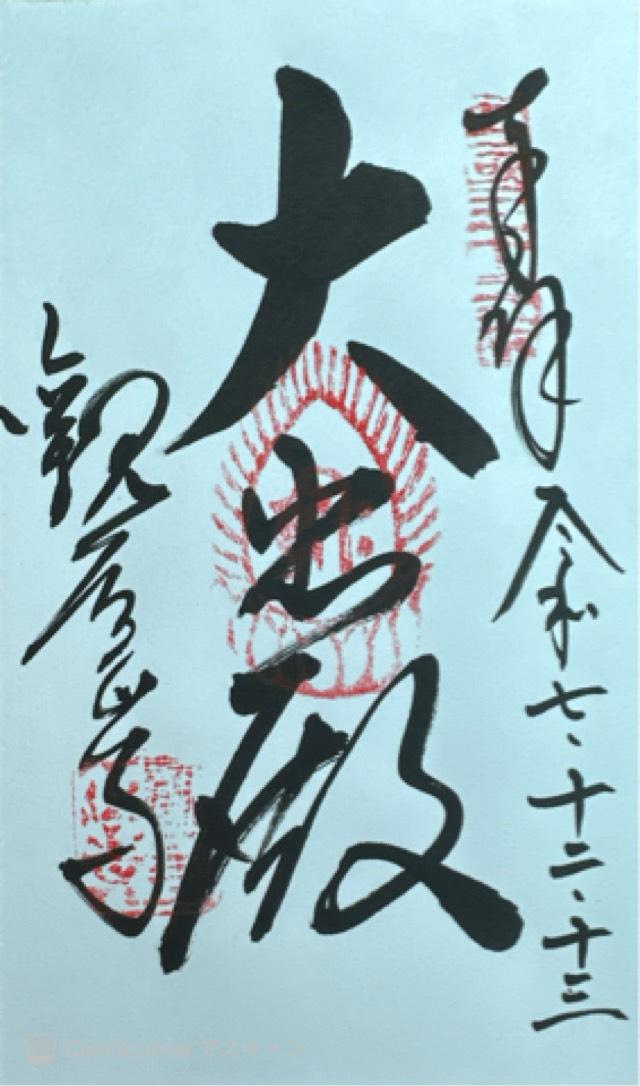 奉拝 令和七・十二・十三
大悲殿
觀音正寺
CamScanner でスキャン